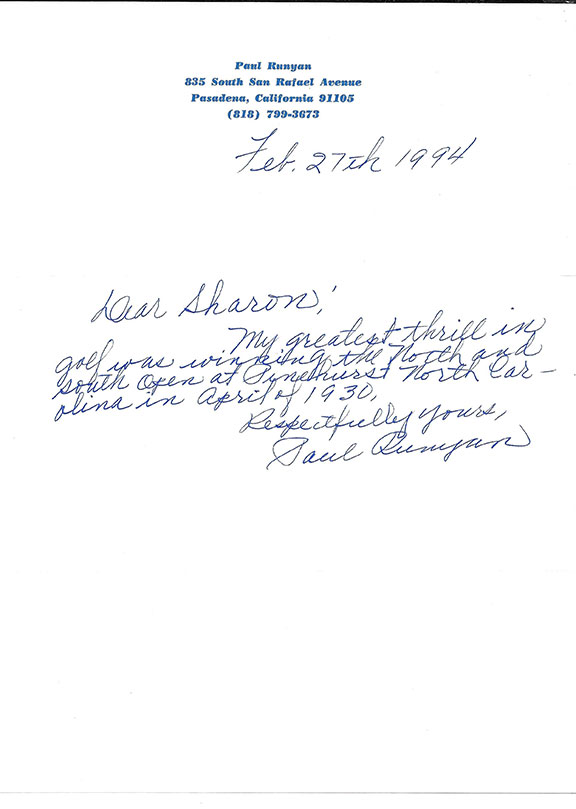 Paul Runyan
835 South San Rafael Avenue
Pasadena, California 91105
(818) 799-3673
Feb. 27th 1994
Dear Sharon!
My greatest thrill in
golf was winning the North and
south open at Pinehurst North Car-
olina in April of 1930.
Respectfully yours,
Paul Runyan